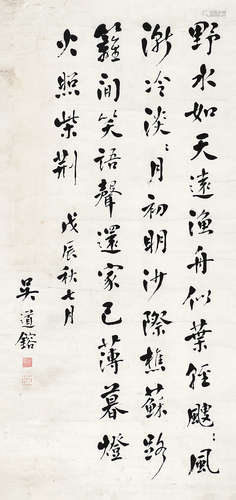 野水如天遠漁舟似葉輕颼〻風
漸冷淡〻月初明沙際樵蘇路
籬間笑語聲還家已薄暮燈
火照柴荊 戊辰秋七月
吳道鎔